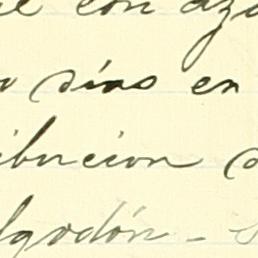 con azu
días en
ibucion d
lgodón -